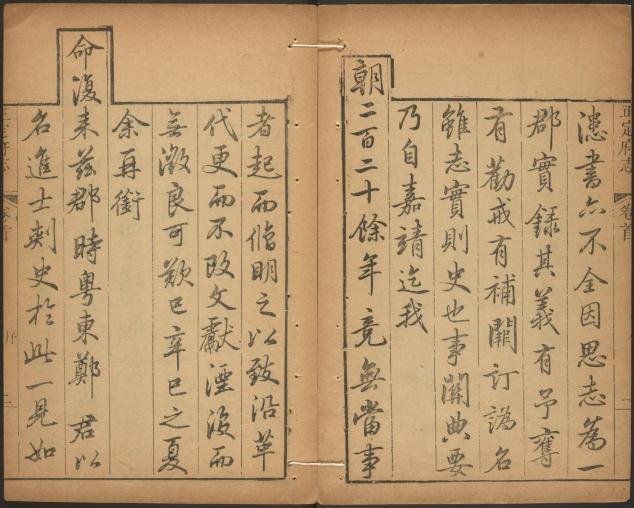 正定府志
卷首
懑書亦不全因思志為一
郡實錄其義有予奪
有勸戒有補闕訂譌名
雖志實則史也事關典要
乃自嘉靖迄我
朝二百二十餘年竟無當事
者起而脩明之以致沿革
代更而不改文獻湮沒而
無徵良可歎已辛巳之夏
余再銜
命復来茲郡時粵東鄭君以
名進士刺史於此一見如
正定府志
卷首
序
二